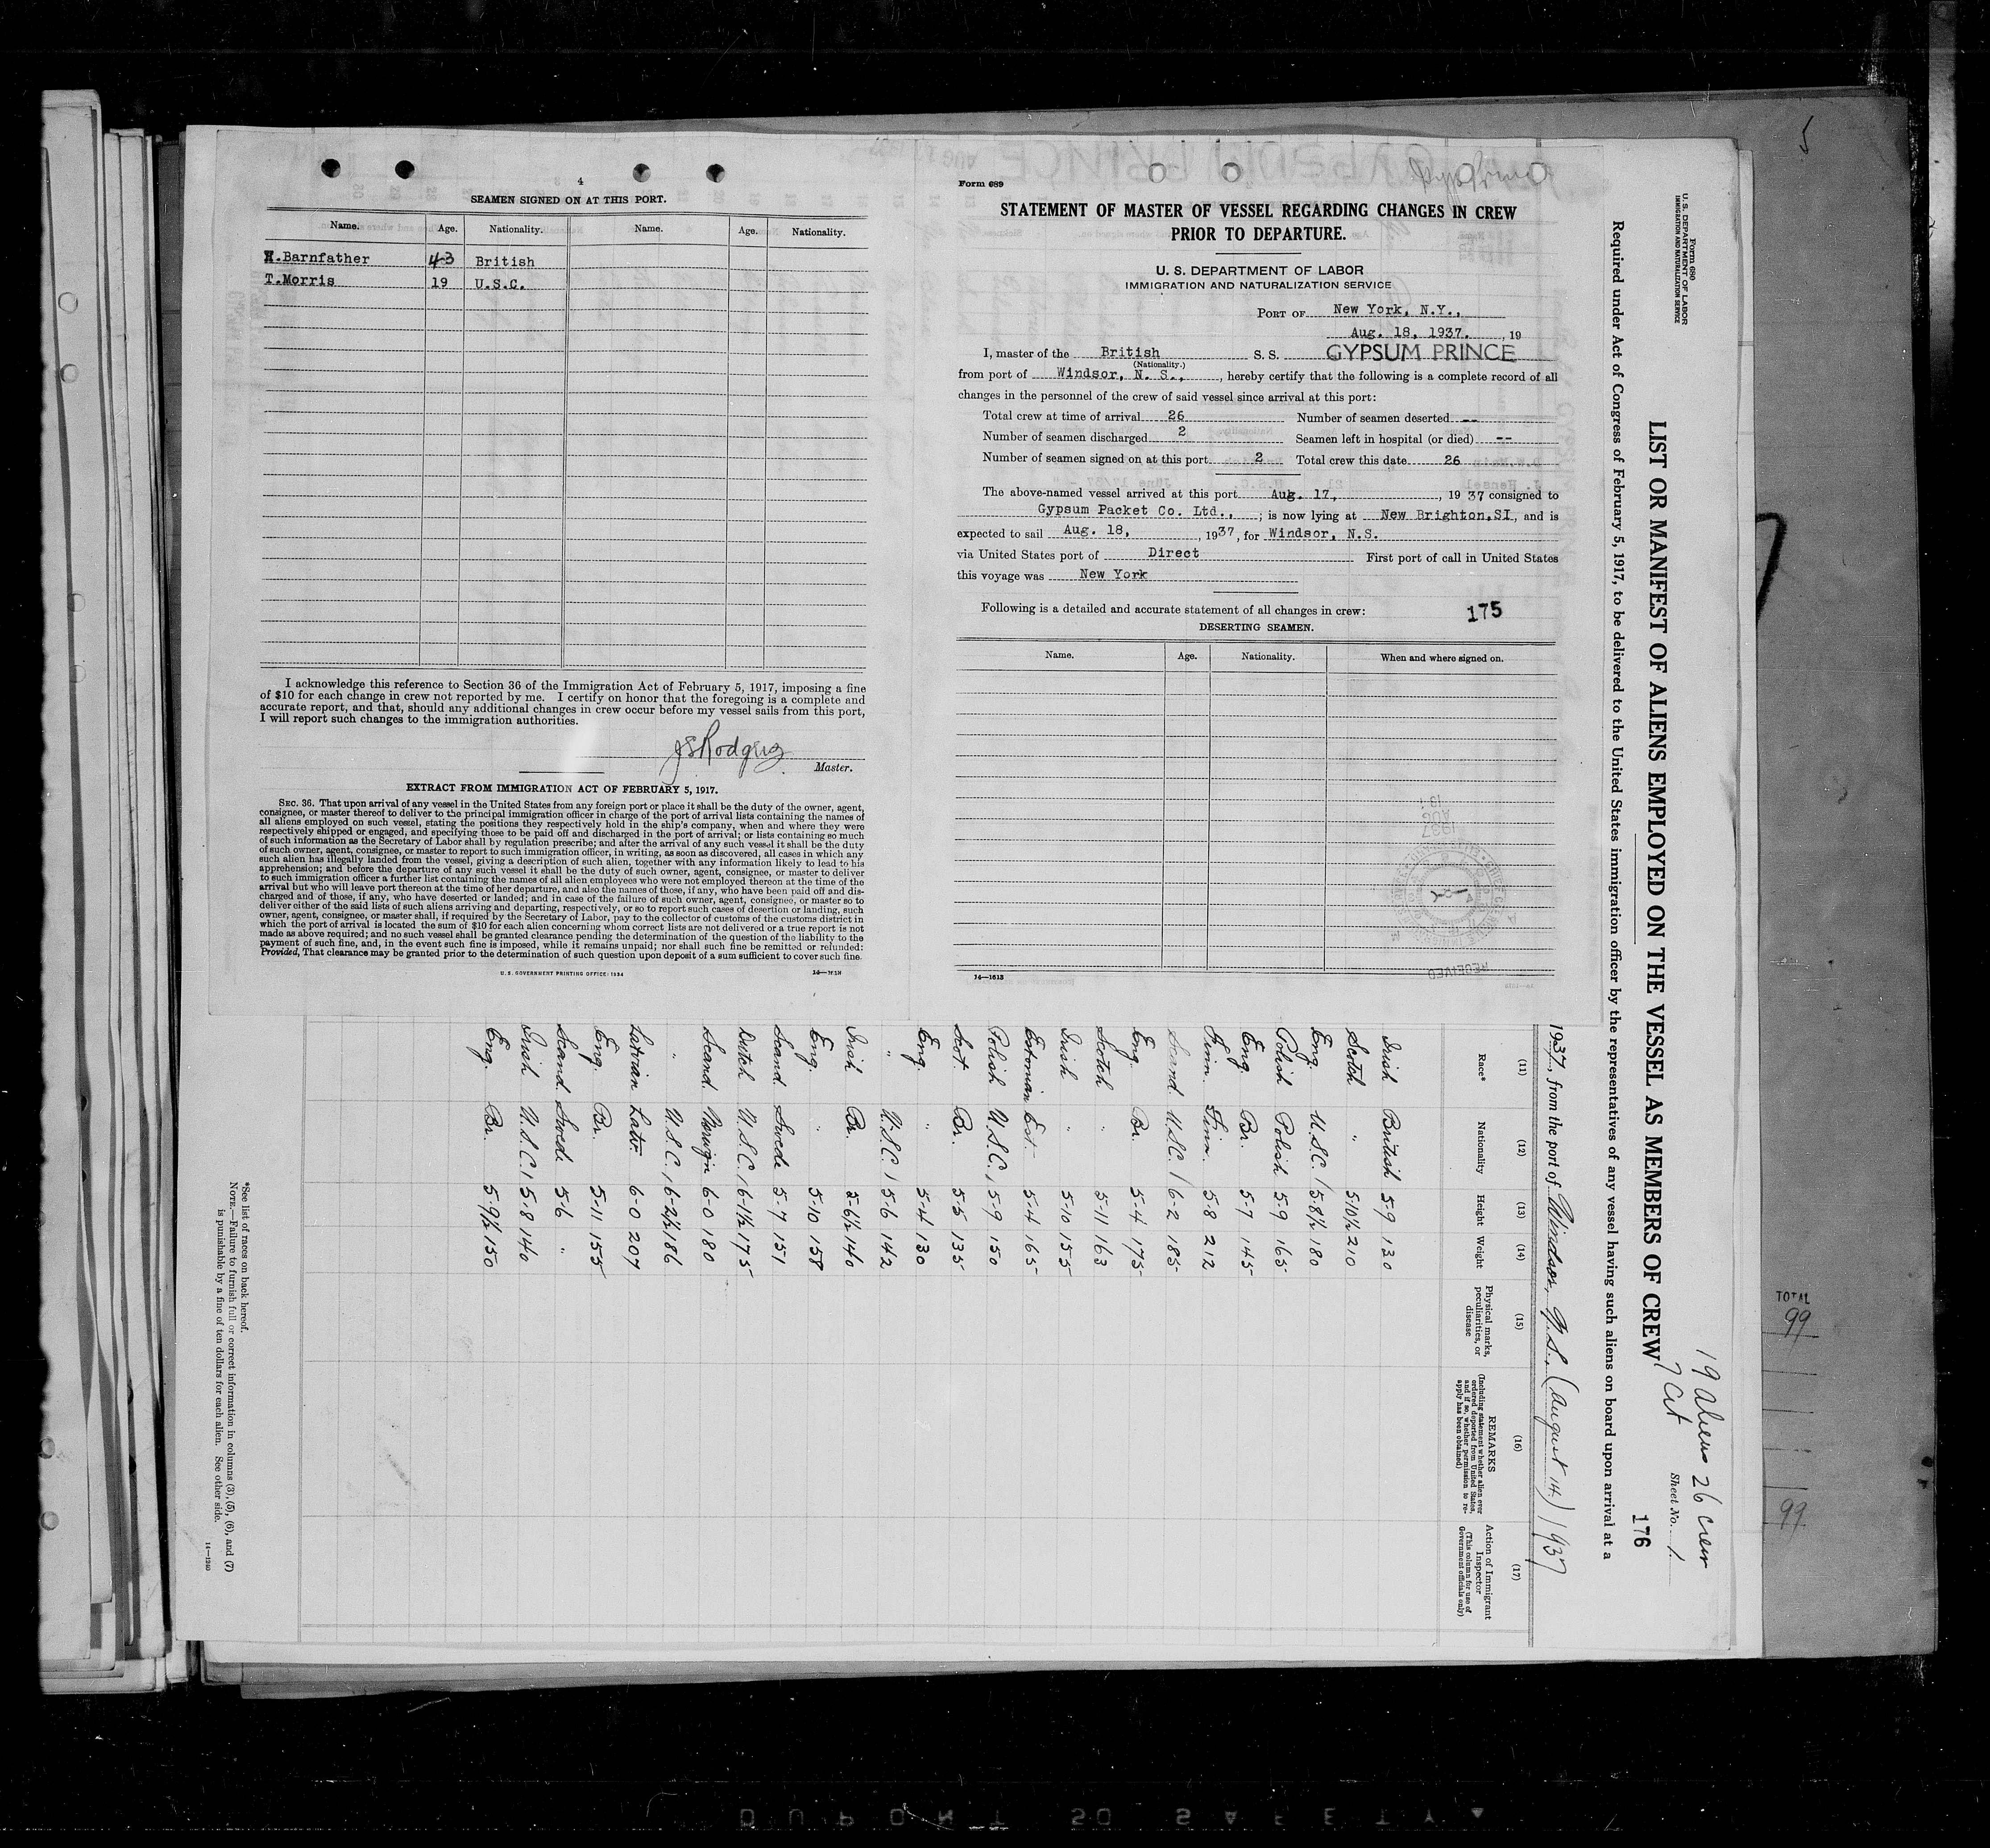 4
SEAMEN SIGNED ON AT THIS PORT.
Name. Age. Nationality. Name. Age. Nationality.
.Barnfather 43 British
T.Morris 19 U.S.C.
I acknowledge this reference to Section 36 of the Immigration Act of February 5, 1917, imposing a fine
of $10 for each change in crew not reported by me. I certify on honor that the foregoing is a complete and
accurate report, and that, should any additional changes in crew occur before my vessel sails from this port,
I will report such changes to the immigration authorities.
Master.
EXTRACT FROM IMMIGRATION ACT OF FEBRUARY 5, 1917.
SEC. 36. That upon arrival of any vessel in the United States from any foreign port or place it shall be the duty of the owner, agent,
consignee, or master thereof to deliver to the principal immigration officer in charge of the port of arrival lists containing the names of
all aliens employed on such vessel, stating the positions they respectively hold in the ship's company, when and where they were
respectively shipped or engaged, and specifying those to be paid off and discharged in the port of arrival; or lists containing so much
of such information as the Secretary of Labor shall by regulation prescribe; and after the arrival of any such vessel it shall be the duty
of such owner, agent, consignee, or master to report to such immigration officer, in writing, as soon as discovered, all cases in which any
such alien has illegally landed from the vessel, giving a description of such alien, together with any information likely to lead to his
apprehension; and before the departure of any such vessel it shall be the duty of such owner, agent, consignee, or master to deliver
to such immigration officer a further list containing the names of all alien employees who were not employed thereon at the time of the
arrival but who will leave port thereon at the time of her departure, and also the names of those, if any, who have been paid off and dis-
charged and of those, if any, who have deserted or landed; and in case of the failure of such owner, agent, consignee, or master so to
deliver either of the said lists of such aliens arriving and departing, respectively, or so to report such cases of desertion or landing, such
owner, agent, consignee, or master shall, if required by the Secretary of Labor, pay to the collector of customs of the customs district in
which the port of arrival is located the sum of $10 for each alien concerning whom correct lists are not delivered or a true report is not
made as above required; and no such vessel shall be granted clearance pending the determination of the question of the liability to the
payment of such fine, and, in the event such fine is imposed, while it remains unpaid; nor shall such fine be remitted or refunded:
Provided, That clearance may be granted prior to the determination of such question upon deposit of a sum sufficient to cover such fine.
U. S. GOVERNMENT PRINTING OFFICE: 1934
Form 689
STATEMENT OF MASTER OF VESSEL REGARDING CHANGES IN CREW
PRIOR TO DEPARTURE.
U. S. DEPARTMENT OF LABOR
IMMIGRATION AND NATURALIZATION SERVICE
PORT OF New York, N.Y.,
Aug. 18, 1937. , 19
I, master of the British S. S. GYPSUM PRINCE
(Nationality.)
from port of Windsor, N. S., , hereby certify that the following is a complete record of all
changes in the personnel of the crew of said vessel since arrival at this port:
Total crew at time of arrival 26 Number of seamen deserted --
Number of seamen discharged 2 Seamen left in hospital (or died) --
Number of seamen signed on at this port 2 Total crew this date 26
The above-named vessel arrived at this port Aug. 17, , 1937 consigned to
Gypsum Packet Co. Ltd., ; is now lying at New Brighton,SI, and is
expected to sail Aug. 18, , 1937, for Windsor, N.S.
via United States port of Direct First port of call in United States
this voyage was New York
Following is a detailed and accurate statement of all changes in crew: 175
DESERTING SEAMEN.
Name. Age. Nationality. When and where signed on.
14—1613
Form 680
U. S. DEPARTMENT OF LABOR
IMMIGRATION AND NATURALIZATION SERVICE
19 Aliens 26 crew
7 Cit
Sheet No. 1.
LIST OR MANIFEST OF ALIENS EMPLOYED ON THE VESSEL AS MEMBERS OF CREW
176
Required under Act of Congress of February 5, 1917, to be delivered to the United States immigration officer by the representatives of any vessel having such aliens on board upon arrival at a
1937, from the port of Windsor, N.S., (August 14) 1937
(11) (12) (13) (14) (15) (16) (17)
Race* Nationality Height Weight Physical marks, peculiarities, or disease REMARKS (Including statement whether alien ever ordered deported from United States, and if so, whether permission to re-apply has been obtained) Action of Immigrant Inspector (This column for use of Government officials only)
Irish British 5-9 130
Scotch " 5-10½ 210
Eng. U.S.C. 5-8½ 180
Polish Polish 5-9 165
Eng. Br. 5-7 145
Finn. Finn. 5-8 212
Scand. U.S.C. 6-2 185
Eng. Br. 5-4 175
Scotch " 5-11 163
Irish " 5-10 155
Estonian Est. 5-4 165
Polish U.S.C. 5-9 150
Scot. Br. 5-5 135
Eng. " 5-4 130
" U.S.C. 5-6 142
Irish Br. 5-6½ 140
Eng. " 5-10 158
Scand. Swede 5-7 151
Dutch U.S.C. 6-1½ 175
Scand. Norwgn 6-0 180
" U.S.C. 6-2½ 186
Latvian Latv. 6-0 207
Eng. Br. 5-11 155
Scand. Swede 5-6 "
Irish U.S.C. 5-8 140
Eng. Br. 5-9½ 150
*See list of races on back hereof.
NOTE.—Failure to furnish full or correct information in columns (3), (5), (6), and (7)
is punishable by a fine of ten dollars for each alien. See other side.
5
TOTAL
99
99
DUPONT SO SAFETY